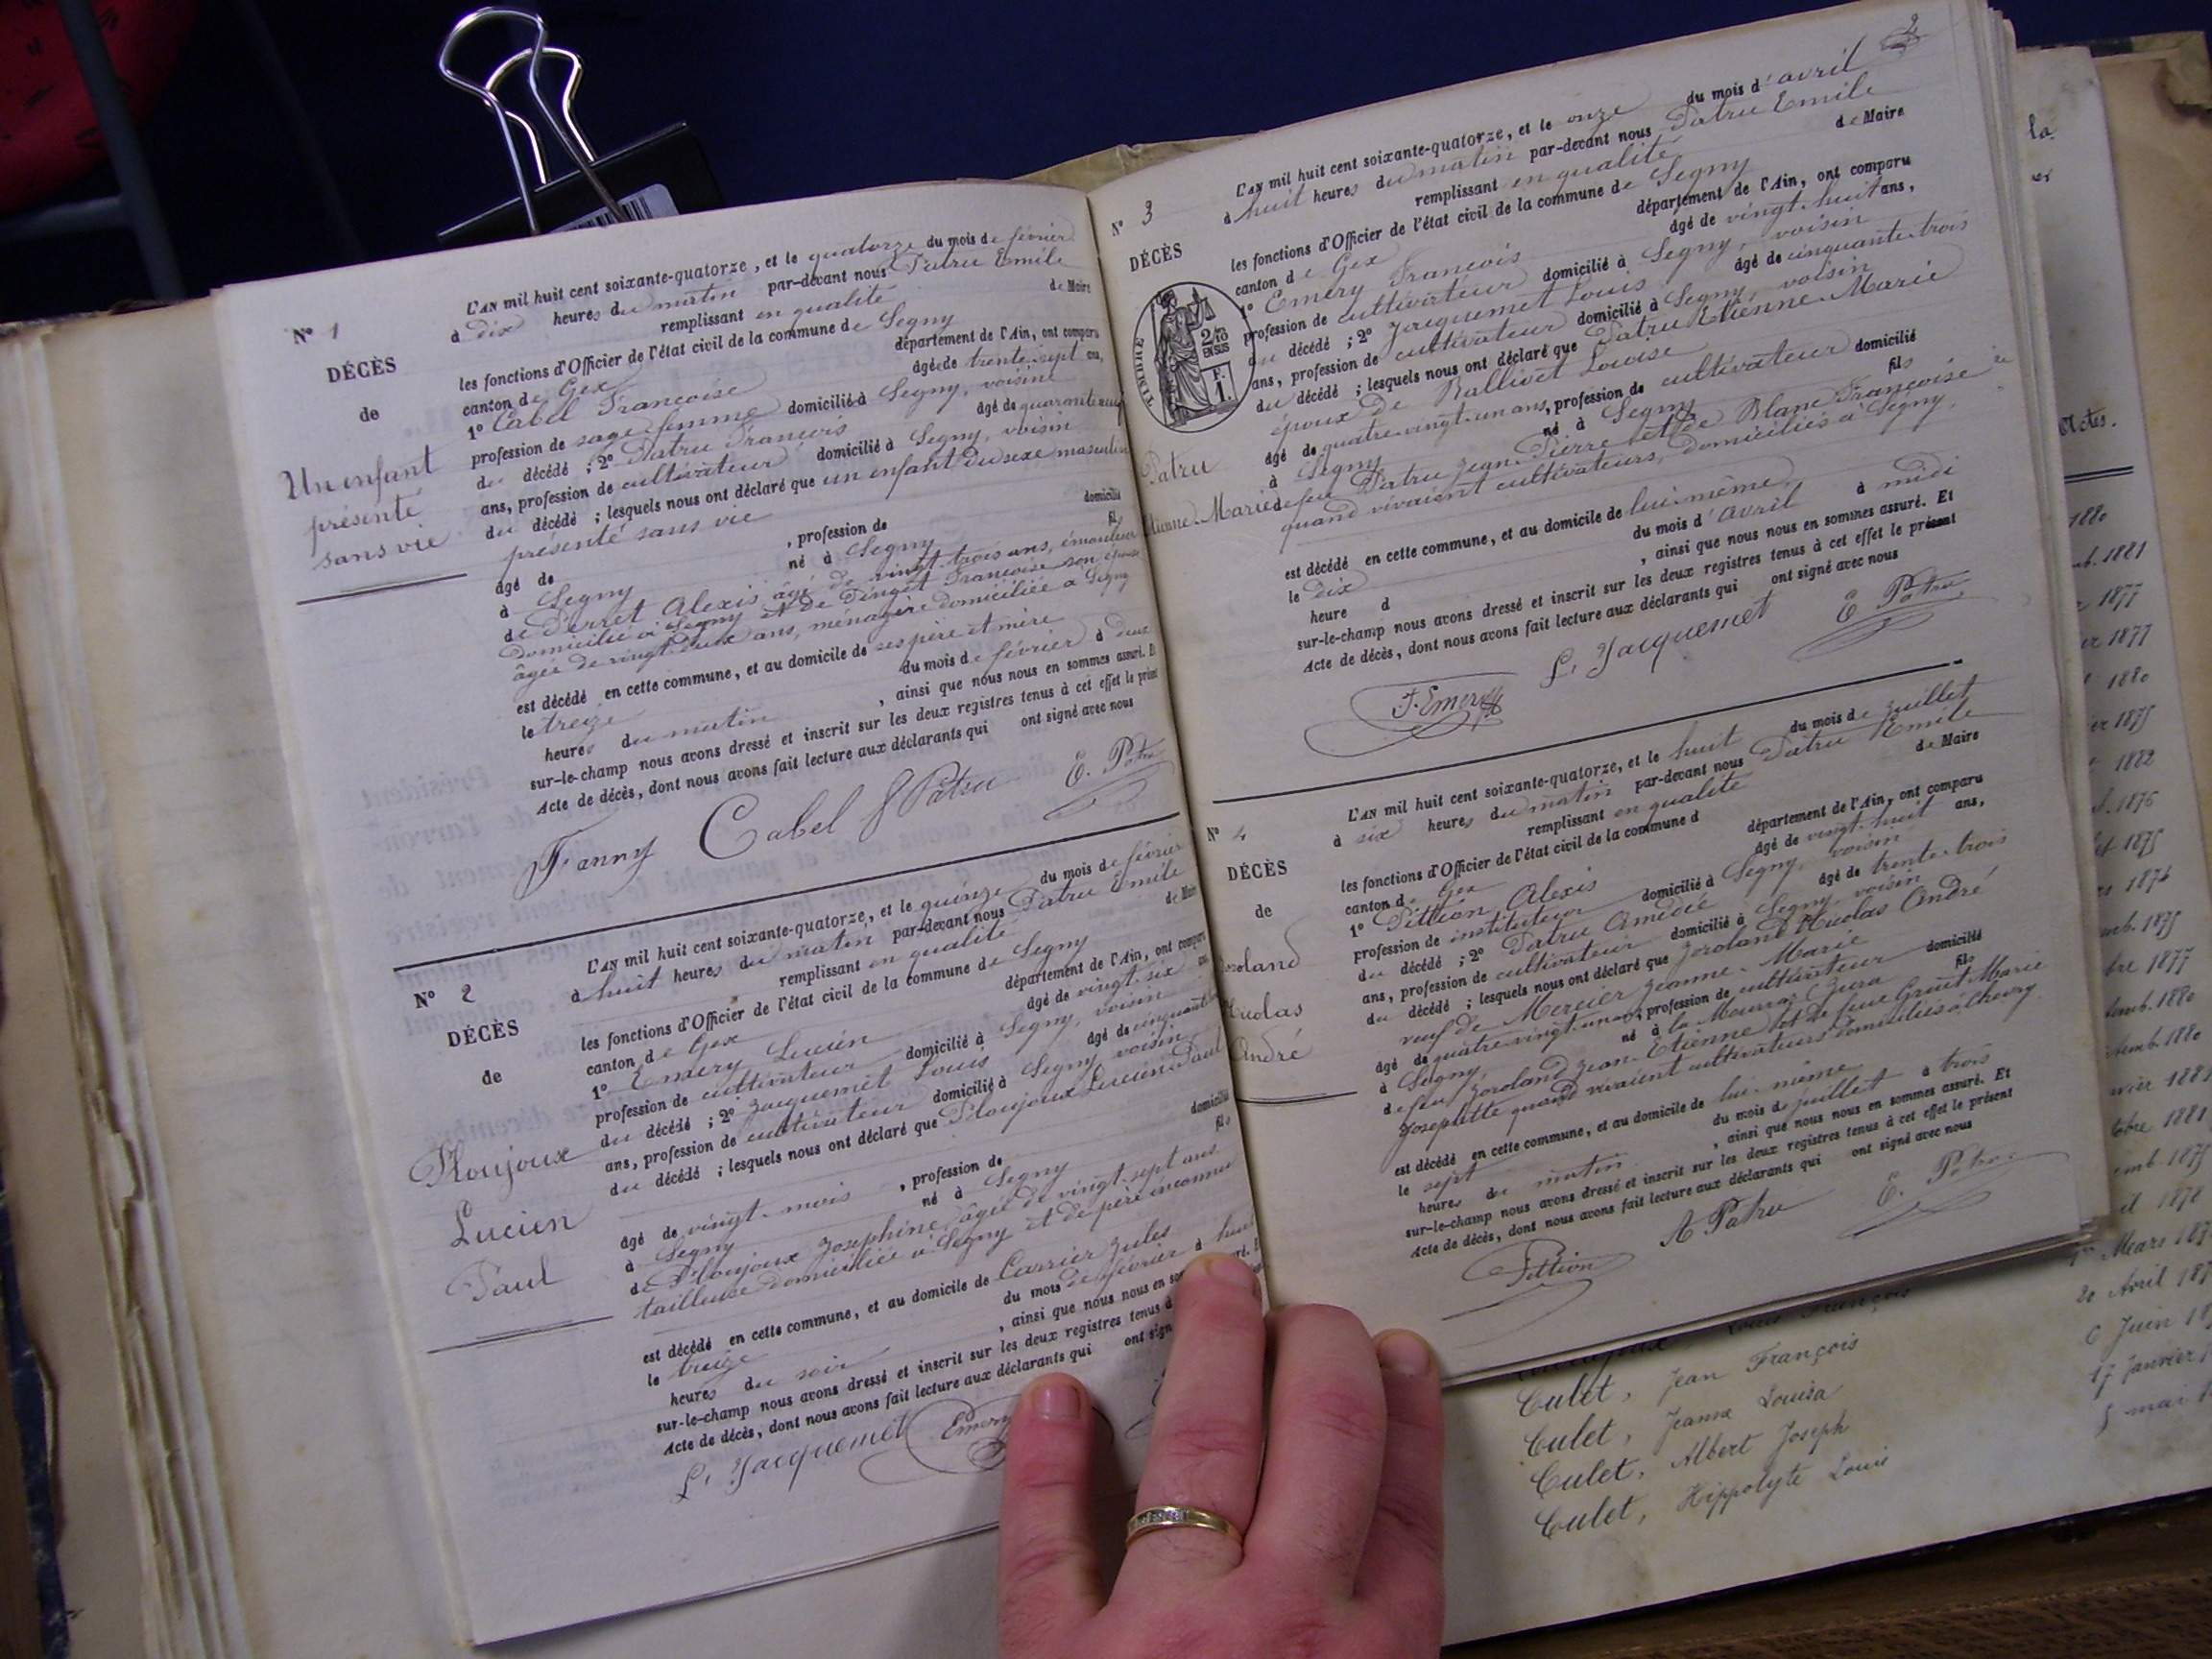 N° 1
DÉCÈS
de
Un enfant
présenté
sans vie
L'AN mil huit cent soixante-quatorze, et le quatorze du mois de février
à dix heures du matin par-devant nous Patru Emile
remplissant en qualité de Maire
les fonctions d'Officier de l'état civil de la commune de Segny
canton de Gex département de l'Ain, ont comparu
1° Cabel Francoise âgée de trente-sept ans,
profession de sage-femme domicilié à Segny, voisine
du décédé ; 2° Patru Francois âgé de quarante
ans, profession de cultivateur domicilié à Segny, voisin
du décédé ; lesquels nous ont déclaré que un enfant du sexe masculin
présenté sans vie
âgé de , profession de domicilié
à Segny né à Segny fil
de Perret Alexis âgé de vingt-trois ans,
domicilié à Segny et de Pinget Francoise son épouse
âgée de vingt-deux ans, ménagère domiciliée à Segny
est décédé en cette commune, et au domicile de ses père et mère
le treize du mois de février à deux
heures du matin , ainsi que nous nous en sommes assuré. Et
sur-le-champ nous avons dressé et inscrit sur les deux registres tenus à cet effet le présent
Acte de décès, dont nous avons fait lecture aux déclarants qui ont signé avec nous
Fanny Cabel F Patru E. Patru
N° 2
DÉCÈS
de
Ploujoux
Lucien
Paul
L'AN mil huit cent soixante-quatorze, et le quinze du mois de février
à huit heures du matin par-devant nous Patru Emile
remplissant en qualité de Maire
les fonctions d'Officier de l'état civil de la commune de Segny
canton de Gex département de l'Ain, ont comparu
1° Emery Lucien âgé de vingt-six ans
profession de cultivateur domicilié à Segny, voisin
du décédé ; 2° Jacquemet Louis âgé de cinquante
ans, profession de cultivateur domicilié à Segny voisin
du décédé ; lesquels nous ont déclaré que Ploujoux Lucien Paul
âgé de vingt mois , profession de domicilié
à Segny né à Segny fils
de Ploujoux Joséphine, âgée de vingt-sept ans
tailleuse domiciliée à Segny et de père inconnu
est décédé en cette commune, et au domicile de Carrier Jules
le treize du mois de février à huit
heures du soir , ainsi que nous nous en
sur-le-champ nous avons dressé et inscrit sur les deux registres tenus
Acte de décès, dont nous avons fait lecture aux déclarants qui ont sign
L. Jacquemet Emery
2
N° 3
DÉCÈS
TIMBRE
2/10
EN SUS
F.
1.
Patru
Etienne-Marie
L'AN mil huit cent soixante-quatorze, et le onze du mois d'avril
à huit heures du matin par-devant nous Patru Emile
remplissant en qualité de Maire
les fonctions d'Officier de l'état civil de la commune de Segny
canton de Gex département de l'Ain, ont comparu
1° Emery Francois âgé de vingt-huit ans,
profession de cultivateur domicilié à Segny, voisin
du décédé ; 2° Jacquemet Louis âgé de cinquante-trois
ans, profession de cultivateur domicilié à Segny, voisin
du décédé ; lesquels nous ont déclaré que Patru Etienne-Marie
époux de Ballivet Louise
âgé de quatre-vingt-un ans, profession de cultivateur domicilié
à Segny né à Segny fils
de feu Patru Jean-Pierre et de Blanc Francoise
quand vivaient cultivateurs, domiciliés à Segny,
est décédé en cette commune, et au domicile de lui-même
le dix du mois d'avril à midi
heure d , ainsi que nous nous en sommes assuré. Et
sur-le-champ nous avons dressé et inscrit sur les deux registres tenus à cet effet le présent
Acte de décès, dont nous avons fait lecture aux déclarants qui ont signé avec nous
F. Emery L. Jacquemet E Patru
N° 4
DÉCÈS
de
Joroland
Nicolas
André
L'AN mil huit cent soixante-quatorze, et le huit du mois de juillet
à six heures du matin par-devant nous Patru Emile
remplissant en qualité de Maire
les fonctions d'Officier de l'état civil de la commune d
canton de Gex département de l'Ain, ont comparu
1° Pittion Alexis âgé de vingt-huit ans,
profession de instituteur domicilié à Segny, voisin
du décédé ; 2° Patru Amédée âgé de trente-trois
ans, profession de cultivateur domicilié à Segny, voisin
du décédé ; lesquels nous ont déclaré que Joroland Nicolas André
veuf de Mercier Jeanne-Marie
âgé de quatre-vingt-un ans, profession de cultivateur domicilié
à Segny, né à la Mourraz (Jura fils
de feu Joroland Jean-Etienne et de feue Marie
Josephtte quand vivaient cultivateurs domiciliés à Chevry
est décédé en cette commune, et au domicile de lui-même
le sept du mois de juillet à trois
heures du matin , ainsi que nous nous en sommes assuré. Et
sur-le-champ nous avons dressé et inscrit sur les deux registres tenus à cet effet le présent
Acte de décès, dont nous avons fait lecture aux déclarants qui ont signé avec nous
Pittion A Patru E. Patru
la
Actes.
1880
1881
1877
1877
1880
1875
1882
1876
1875
1875
1877
1880
1880
1881
1878
Mars
20 Avril
6 Juin
17 Janvier
5 mai
Culet, Jean François
Culet, Jeanne Louisa
Culet, Albert Joseph
Culet, Hippolyte Louis